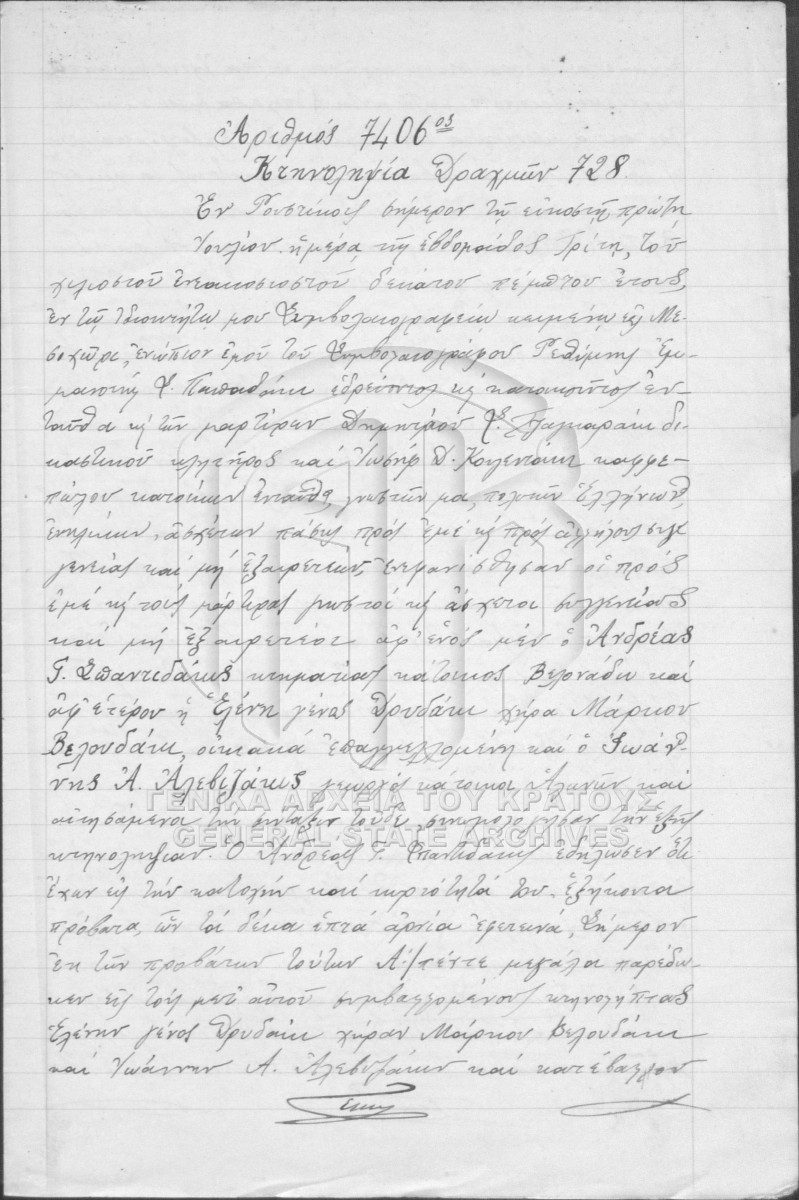 Ἀριθμός 7406ος
Κτηνοληψία Δραχμῶν 728.
Ἐν Ρουστίκοις σήμερον τῇ εἰκοστῇ πρώτῃ
Ἰουλίου ἡμέρᾳ τῆς ἑβδομάδος Τρίτῃ, τοῦ
χιλιοστοῦ ἐνεακοσιοστοῦ δεκάτου πέμπτου ἔτους,
ἐν τῷ ἰδιοκτήτῳ μου Συμβολαιογραφείῳ κειμένῳ εἰς Με-
σοχῶρι, ἐνώπιον ἐμοῦ τοῦ Συμβολαιογράφου Ρεθύμνης Ἐμ-
μανουήλ Παπαδάκι ἑδρεύοντος κ κατοικοῦντος ἐν-
ταῦθα κ τῶν μαρτύρων Δημητρίου δι-
καστικοῦ κλητῆρος καί Ἰωσήφ Δ. καφφε-
πώλου κατοίκων ἐνταῦθα, γνωστῶν μοι, πολιτῶν Ἑλλήνων,
ἐνηλίκων, ἀσχέτων πάσης πρός ἐμέ κ πρός ἀλλήλους συγ-
γενείας καί μή ἐξαιρετέων, ἐνεφανίσθησαν οἱ πρός
ἐμέ κ τούς μάρτυρας γνωστοί κ ἄσχετοι συγγενείας
καί μή ἐξαιρετέοι ἀφ' ἑνός μέν ὁ Ἀνδρέας
Γ. Σπαντιδάκις κτηματίας κάτοικος Βελονάδω καί
ἀφ' ἑτέρου ἡ Ἑλένη γένος Δρυδάκι χήρα Μάρκου
Βελουδάκι, οἰκιακά ἐπαγγελλομένη καί ὁ Ἰωάν-
νης Α. Ἀλεβιζάκις γεωργός κάτοικοι Ἀλωνῶν καί
αἰτησάμενοι τήν σύνταξιν τοῦδε, συνωμολόγησαν τήν ἑξῆς
κτηνοληψίαν. Ὁ Ἀνδρέας Γ. Σπαντιδάκις ἐδήλωσεν ὅτι
ἔχων εἰς τήν κατοχήν καί κυριότητά του ἑξήκοντα
πρόβατα, ὧν τά δέκα ἑπτά ἀρνία ἐφετεινά, Σήμερον
ἐκ τῶν προβάτων τούτων Α/ πέντε μεγάλα παρέδω-
κεν εἰς τούς μετ' αὐτοῦ συμβαλλομένους κτηνολήπτας
Ἑλένην γένος Δρυδάκι χήραν Μάρκου Βελουδάκι
καί Ἰωάννην Α. Ἀλεβυζάκιν καί κατέβαλλον
ΓΕΝΙΚΑ ΑΡΧΕΙΑ ΤΟΥ ΚΡΑΤΟΥΣ
GENERAL STATE ARCHIVES